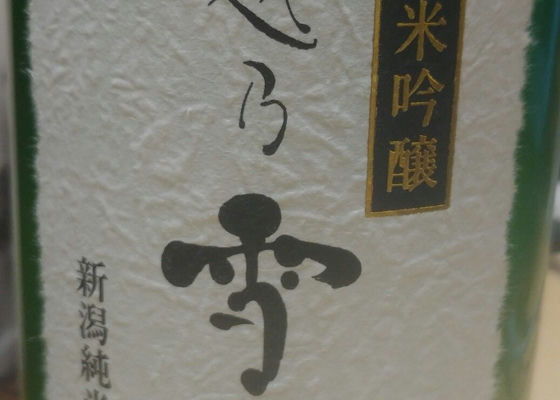 米吟醸
越乃雪
新潟純米